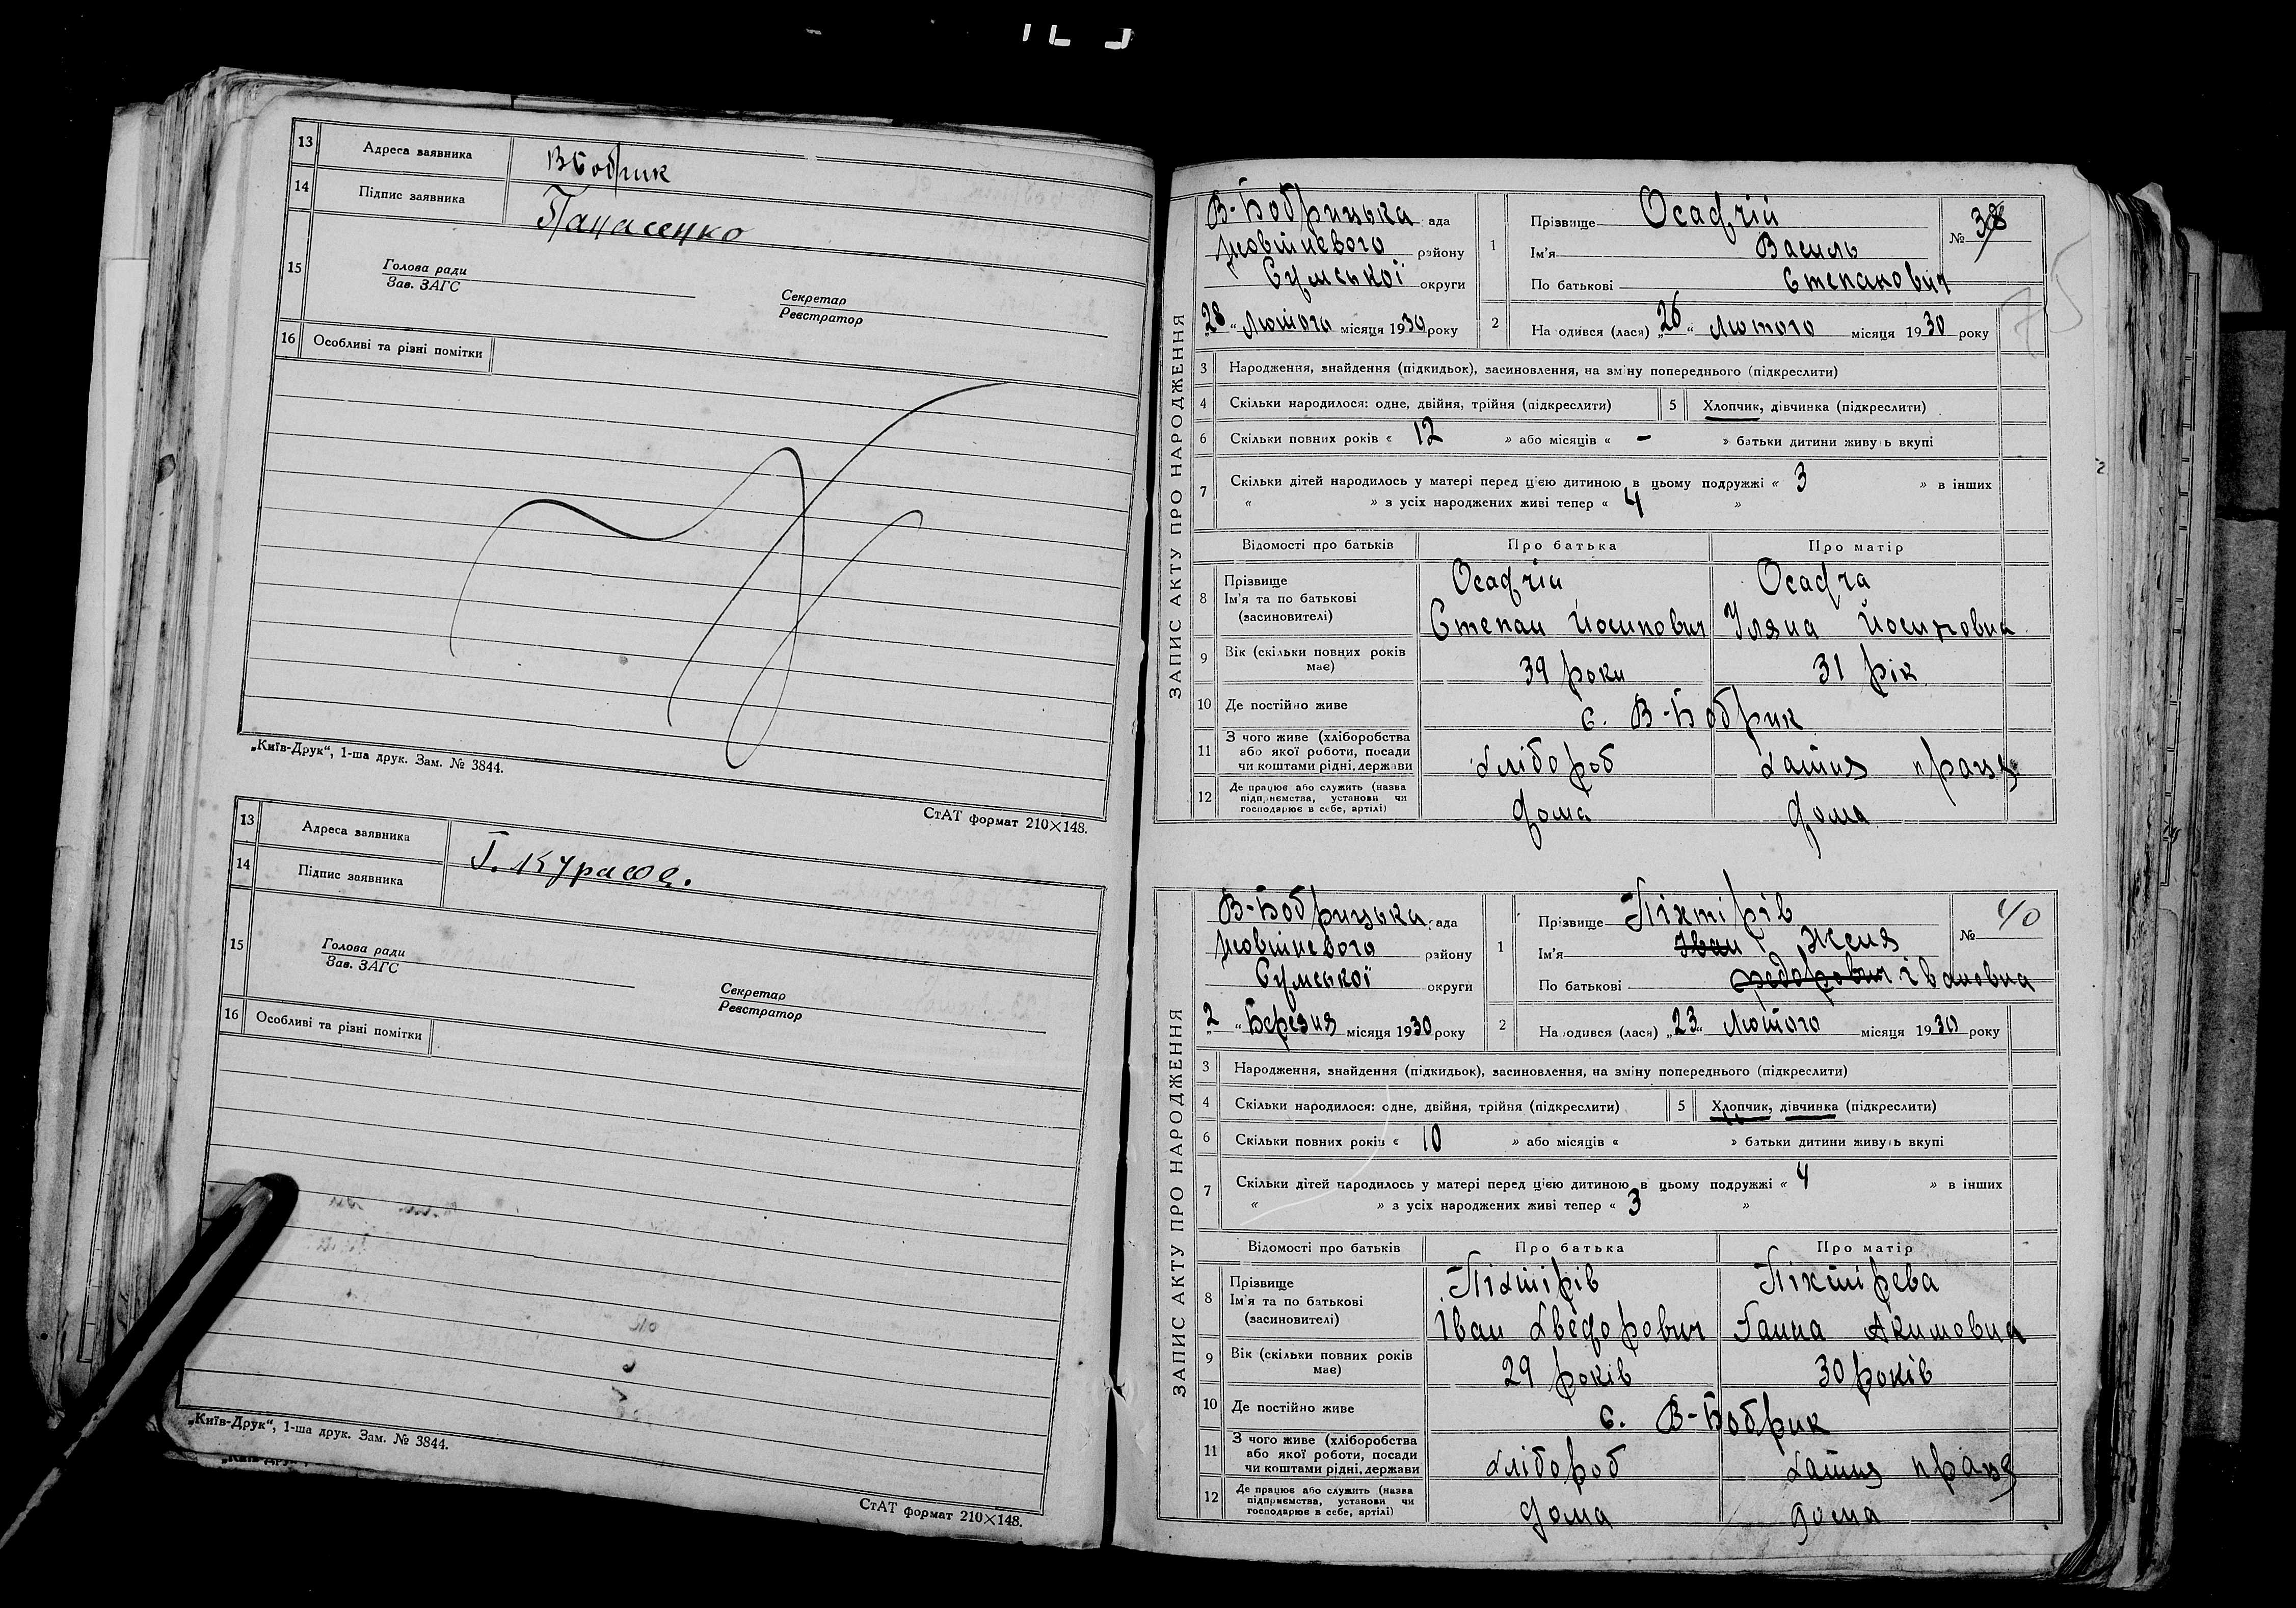 13 Адреса заявника В Бобрик
14 Підпис заявника Панасенко
15 Голова ради
Зав. ЗАГС
Секретар
Реєстратор
16 Особливі та різні помітки
„Київ-Друк“, 1-ша друк. Зам. № 3844.
СтАТ формат 210×148.
13 Адреса заявника
14 Підпис заявника
15 Голова ради
Зав. ЗАГС
Секретар
Реєстратор
16 Особливі та різні помітки
„Київ-Друк“, 1-ша друк. Зам. № 3844.
СтАТ формат 210×148.
ЗАПИС АКТУ ПРО НАРОДЖЕННЯ
В-Бобрицька ада
Жовтневого району
Сумської округи
28 “ Лютого місяця 1930 року
1 Прізвище Осадчій
Ім'я Василь
По батькові Степанович
№ 38
2 На одився (лася) „26“ Лютого місяця 1930 року
3 Народження, знайдення (підкидьок), засиновлення, на зміну попереднього (підкреслити)
4 Скільки народилося: одне, двійня, трійня (підкреслити) 5 Хлопчик, дівчинка (підкреслити)
6 Скільки повних років « 12 » або місяців « - » батьки дитини живуть вкупі
7 Скільки дітей народилось у матері перед цією дитиною в цьому подружжі « 3 » в інших
« » з усіх народжених живі тепер « 4 »
Відомості про батьків Про батька Про матір
8 Прізвище Осадчій Осадча
Ім'я та по батькові
(засиновителі) Степан Йосипович Уляна Йосиповна
9 Вік (скільки повних років має) 39 роки 31 рік
10 Де постійно живе с. В-Бобрик
11 З чого живе (хліборобства
або якої роботи, посади
чи коштами рідні, держави хлібороб хатня праця
12 Де працює або служить (назва
підприємства, установи чи
господарює в себе, артілі) дома дома
ЗАПИС АКТУ ПРО НАРОДЖЕННЯ
В-Бобрицька ада
Жовтневого району
Сумської округи
2 “ Березня місяця 1930 року
1 Прізвище Піхтірів
Ім'я Іван Женя
По батькові Федорович Івановна
№ 40
2 На одився (лася) „23“ Лютого місяця 1930 року
3 Народження, знайдення (підкидьок), засиновлення, на зміну попереднього (підкреслити)
4 Скільки народилося: одне, двійня, трійня (підкреслити) 5 Хлопчик, дівчинка (підкреслити)
6 Скільки повних років « 10 » або місяців « » батьки дитини живуть вкупі
7 Скільки дітей народилось у матері перед цією дитиною в цьому подружжі « 4 » в інших
« » з усіх народжених живі тепер « 3 »
Відомості про батьків Про батька Про матір
8 Прізвище Піхтірів Піхтірева
Ім'я та по батькові
(засиновителі) Іван Хведорович Ганна Акимовна
9 Вік (скільки повних років має) 29 років 30 років
10 Де постійно живе с. В-Бобрик
11 З чого живе (хліборобства
або якої роботи, посади
чи коштами рідні, держави хлібороб хатня праця
12 Де працює або служить (назва
підприємства, установи чи
господарює в себе, артілі) дома дома